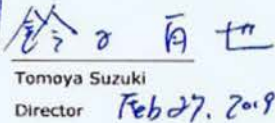 鈴
Tomoya Suzuki
Director Feb 27. 2019